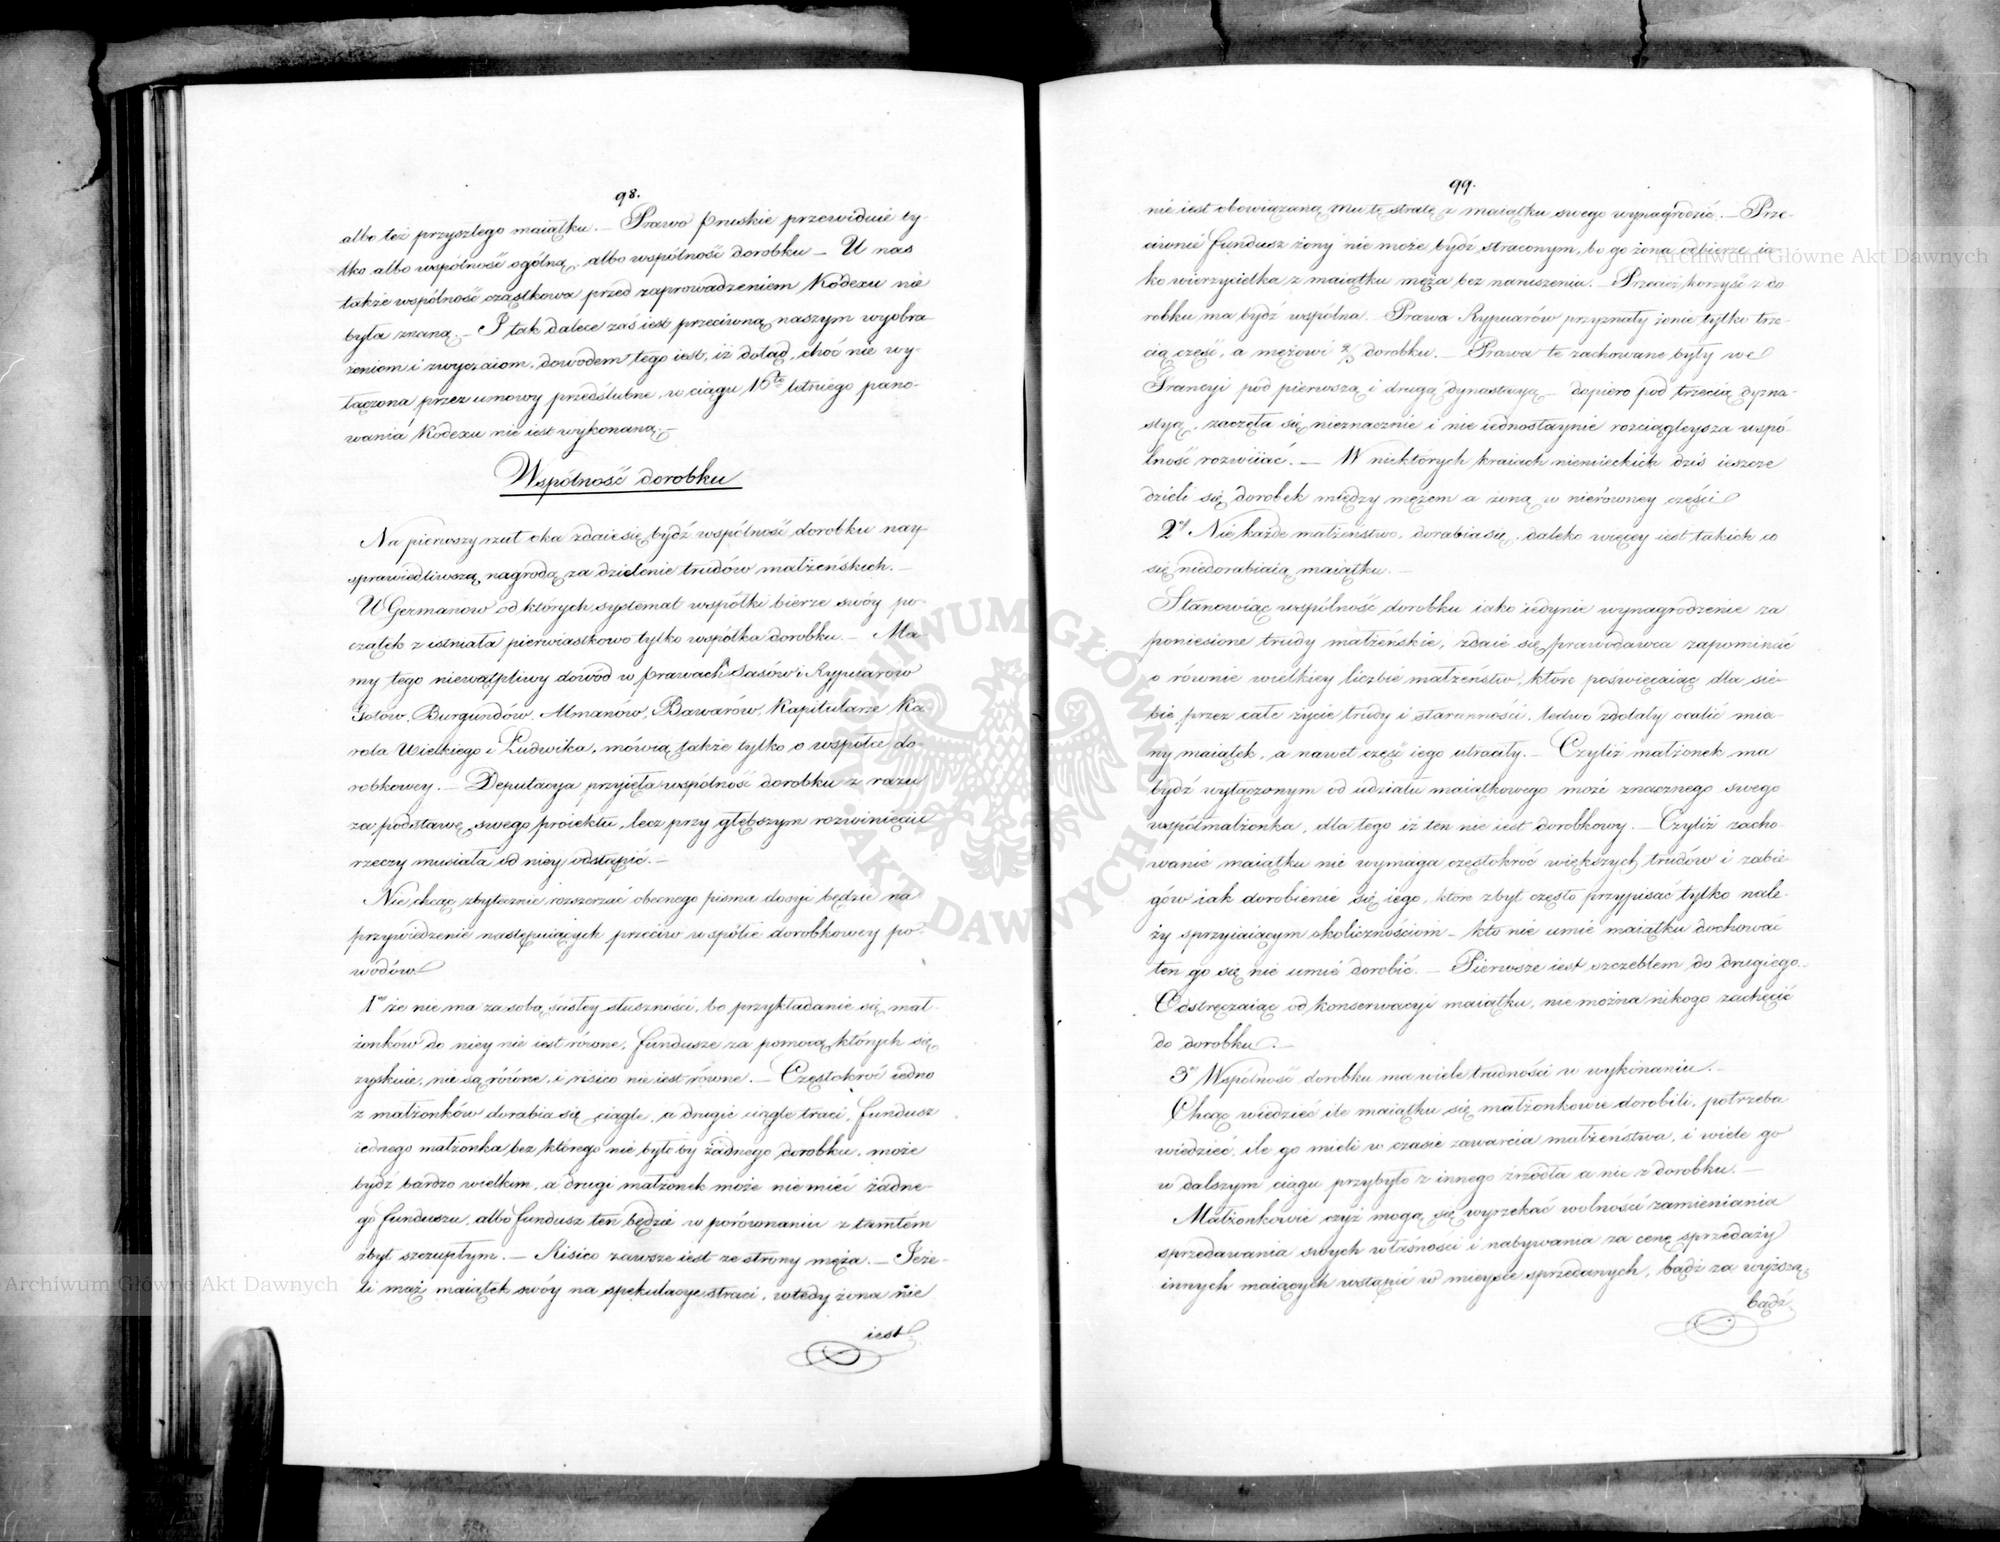 98.
albo też przyszłego maiątku. — Prawo Pruskie przewiduie ty-
lko albo wspólność ogólną, albo wspólność dorobku — U nas
także wspólność cząstkowa przed zaprowadzeniem Kodexu nie
była znaną. — I tak dalece zaś iest przeciwną naszym wyobra-
żeniom i zwyczaiom, dowodem tego iest, iż dotąd, choć nie wy-
łączona przez umowy przedślubne, w ciągu 16to letniego pano-
wania Kodexu nie iest wykonaną. —
Wspólność dorobku
Na pierwszy rzut oka zdaie się bydź wspólność dorobku nay-
sprawiedliwszą nagrodą za dzielenie trudów małżeńskich. —
U Germanów od których systemat wspólki bierze swóy po-
czątek z istniała pierwiastkowo tylko wspólka dorobku. — Ma-
my tego niewątpliwy dowód w prawach Sasów i Rypuarów
Gotów, Burgundów, Almanów, Bawarów, Kapitularze Ka-
rola Wielkiego i Ludwika, mówią także tylko o wspólce do-
robkowey. — Deputacya przyięła wspólność dorobku z razu
za podstawę swego proiektu, lecz przy głębszym rozwinięciu
rzeczy musiała od niey odstąpić. —
Nie chcąc zbytecznie rozszerzać obecnego pisma dosyć będzie na
przywiedzenie następuiących przeciw wspólce dorobkowey po-
wodów
1o że nie ma za sobą ścisłey słuszności, bo przykładanie się mał-
żonków do niey nie iest równe, fundusze za pomocą których się
zyskuie, nie są równe, i risico nie iest równe. — Częstokroć iedno
z małżonków dorabia się ciągle, a drugie ciągle traci, fundusz
iednego małżonka bez którego nie było by żadnego dorobku, może
bydź bardzo wielkim, a drugi małżonek może nie mieć żadne-
go funduszu, albo fundusz ten będzie w porównaniu z tamtem
zbyt szczupłym. — Risico zawsze iest ze strony męża. — Ieże-
li mąż maiątek swóy na spekulacye straci, wtedy żona nie
iest
99.
nie iest obowiązaną mu tę stratę z maiątku swego wynagrodzić. — Prze-
ciwnie fundusz żony nie może bydź straconym, bo go żona odbierze ia-
ko wierzycielka z maiątku męża bez naruszenia. — Przecież korzyść z do-
robku ma bydź wspólna. — Prawa Rypuarów przyznały żonie tylko trze-
cią część, a mężowi 2/3 dorobku. — Prawa te zachowane były we
Francyi pod pierwszą i drugą dynastayą — dopiero pod trzecią dyna-
styą, zaczęła się nieznacznie i nie iednostaynie rozciągleysza wspó-
lność rozwiiać. — W niektórych kraiach niemieckich dziś ieszcze
dzieli się dorobek między mężem a żoną w nierówney części
2o Nie każde małżeństwo, dorabia się, daleko więcey iest takich co
się niedorabiaią maiątku. —
Stanowiąc wspólność dorobku iako iedynie wynagrodzenie za
poniesione trudy małżeńskie, zdaie się prawodawca zapominać
o równie wielkiey liczbie małżeństw, które poświęcaiąc dla sie-
bie przez całe życie trudy i staranności, ledwo zdołały ocalić mia-
ny maiątek, a nawet część iego utraciły. — Czyliż małżonek ma
bydź wyłączonym od udziału maiątkowego może znacznego swego
współmałżonka, dla tego iż ten nie iest dorobkowy. — Czyliż zacho-
wanie maiątku nie wymaga częstokroć większych trudów i zabie-
gów iak dorobienie się iego, które zbyt często przypisać tylko nale-
ży sprzyiaiącym okolicznościom — kto nie umie maiątku dochować
ten go się nie umie dorobić. — Pierwsze iest szczeblem do drugiego. —
Odstręczaiąc od konserwacyi maiątku, nie można nikogo zachęcić
do dorobku. —
3o Wspólność dorobku ma wiele trudności w wykonaniu. —
Chcąc wiedzieć ile maiątku się małżonkowie dorobili, potrzeba
wiedzieć, ile go mieli w czasie zawarcia małżeństwa, i wiele go
w dalszym ciągu przybyło z innego źrzódła a nie z dorobku. —
Małżonkowie czyż mogą się wyrzekać wolności zamieniania
sprzedawania swych własności i nabywania za cenę sprzedaży
innych maiących wstąpić w mieysce sprzedanych, bądź za wyższą
bądź
Archiwum Główne Akt Dawnych
Archiwum Główne Akt Dawnych
ARCHIWUM GŁÓWNE AKT DAWNYCH